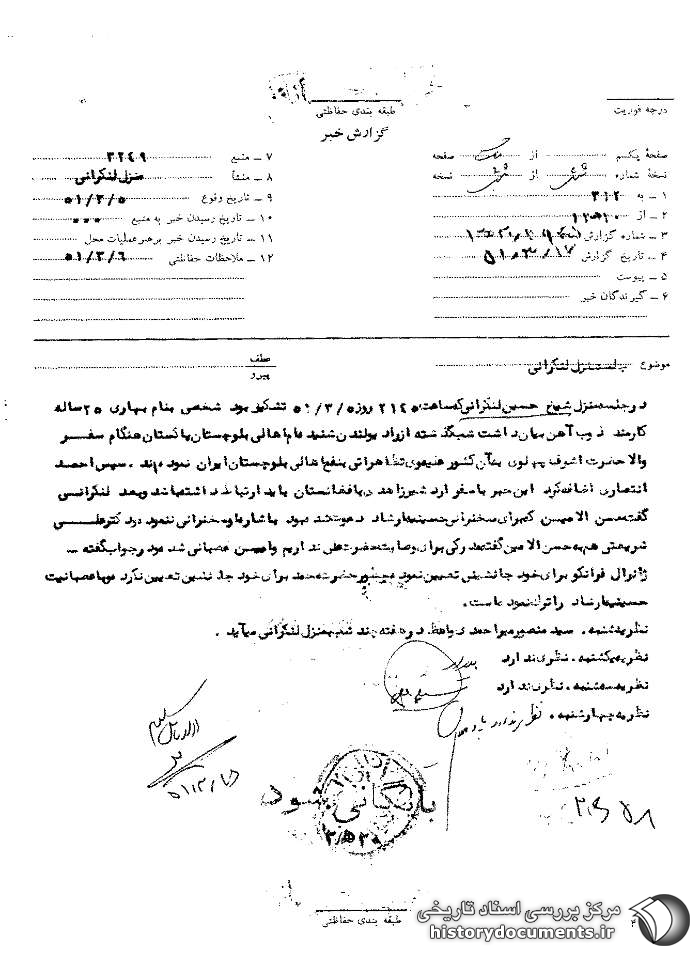 درجه فوریت
طبقه بندی حفاظتی
گزارش خبر
صفحهٔ یکم از صفحه
نسخهٔ شماره از نسخه
۱ ــ به ۳۱۲
۲ ــ از
۳ ــ شماره گزارش
۴ ــ تاریخ گزارش ۵۱/۳/۱۷
۵ ــ پیوست
۶ ــ گیرندگان خبر
۷ ــ منبع ۳۲۴۹
۸ ــ منشأ منزل لنکرانی
۹ ــ تاریخ وقوع ۵۱/۳/۵
۱۰ ــ تاریخ رسیدن خبر به منبع
۱۱ ــ تاریخ رسیدن خبر برهبر عملیات محل
۱۲ ــ ملاحظات حفاظتی ۵۱/۳/۶
موضوع جلسه منزل لنکرانی
عطف
پیرو
در جلسه منزل شیخ حسین لنکرانی که ساعت ۲۱۴۵ روز ۵۱/۳/۵ تشکیل بود شخصی بنام بهاری ۲۵ ساله
کارمند ذوب آهن بیان داشت شب گذشته از رادیو لندن شنیدم اهالی بلوچستان پاکستان هنگام سفر
والاحضرت اشرف پهلوی به آن کشور علیه وی تظاهراتی بنفع اهالی بلوچستان ایران نموده‌اند . سپس احمد
انتصاری اضافه کرد این خبر با سفر اردشیر زاهدی بافغانستان باید ارتباط داشته باشد و بعد لنکرانسی
گفته حسن الامیسن که برای سخنرانی حسینیه ارشاد دعوت شده بود با شاره او سخنرانی ننمود و دکتر علسی
شریعتی هم به حسن الامین گفته مدرکی برای وصایت حضرت علی نداریم و امین عصبانی شده و در جواب گفته ــ
ژنرال فرانکو برای خود جانشینی تعیین نموده چطور حضرت محمد برای خود جانشین تعیین نکرد و با عصبانیت
حسینیه ارشاد را ترک نموده است .
نظریه شنبه . سید منصور میراحمدی واعظ در هفته چند شب به منزل لنکرانی میآید .
نظریه یکشنبه . نظری ندارد
نظریه سه‌شنبه . نظری ندارد
نظریه چهارشنبه . نظری ندارد
بایگانی شود
طبقه بندی حفاظتی
مرکز بررسی اسناد تاریخی
historydocuments.ir